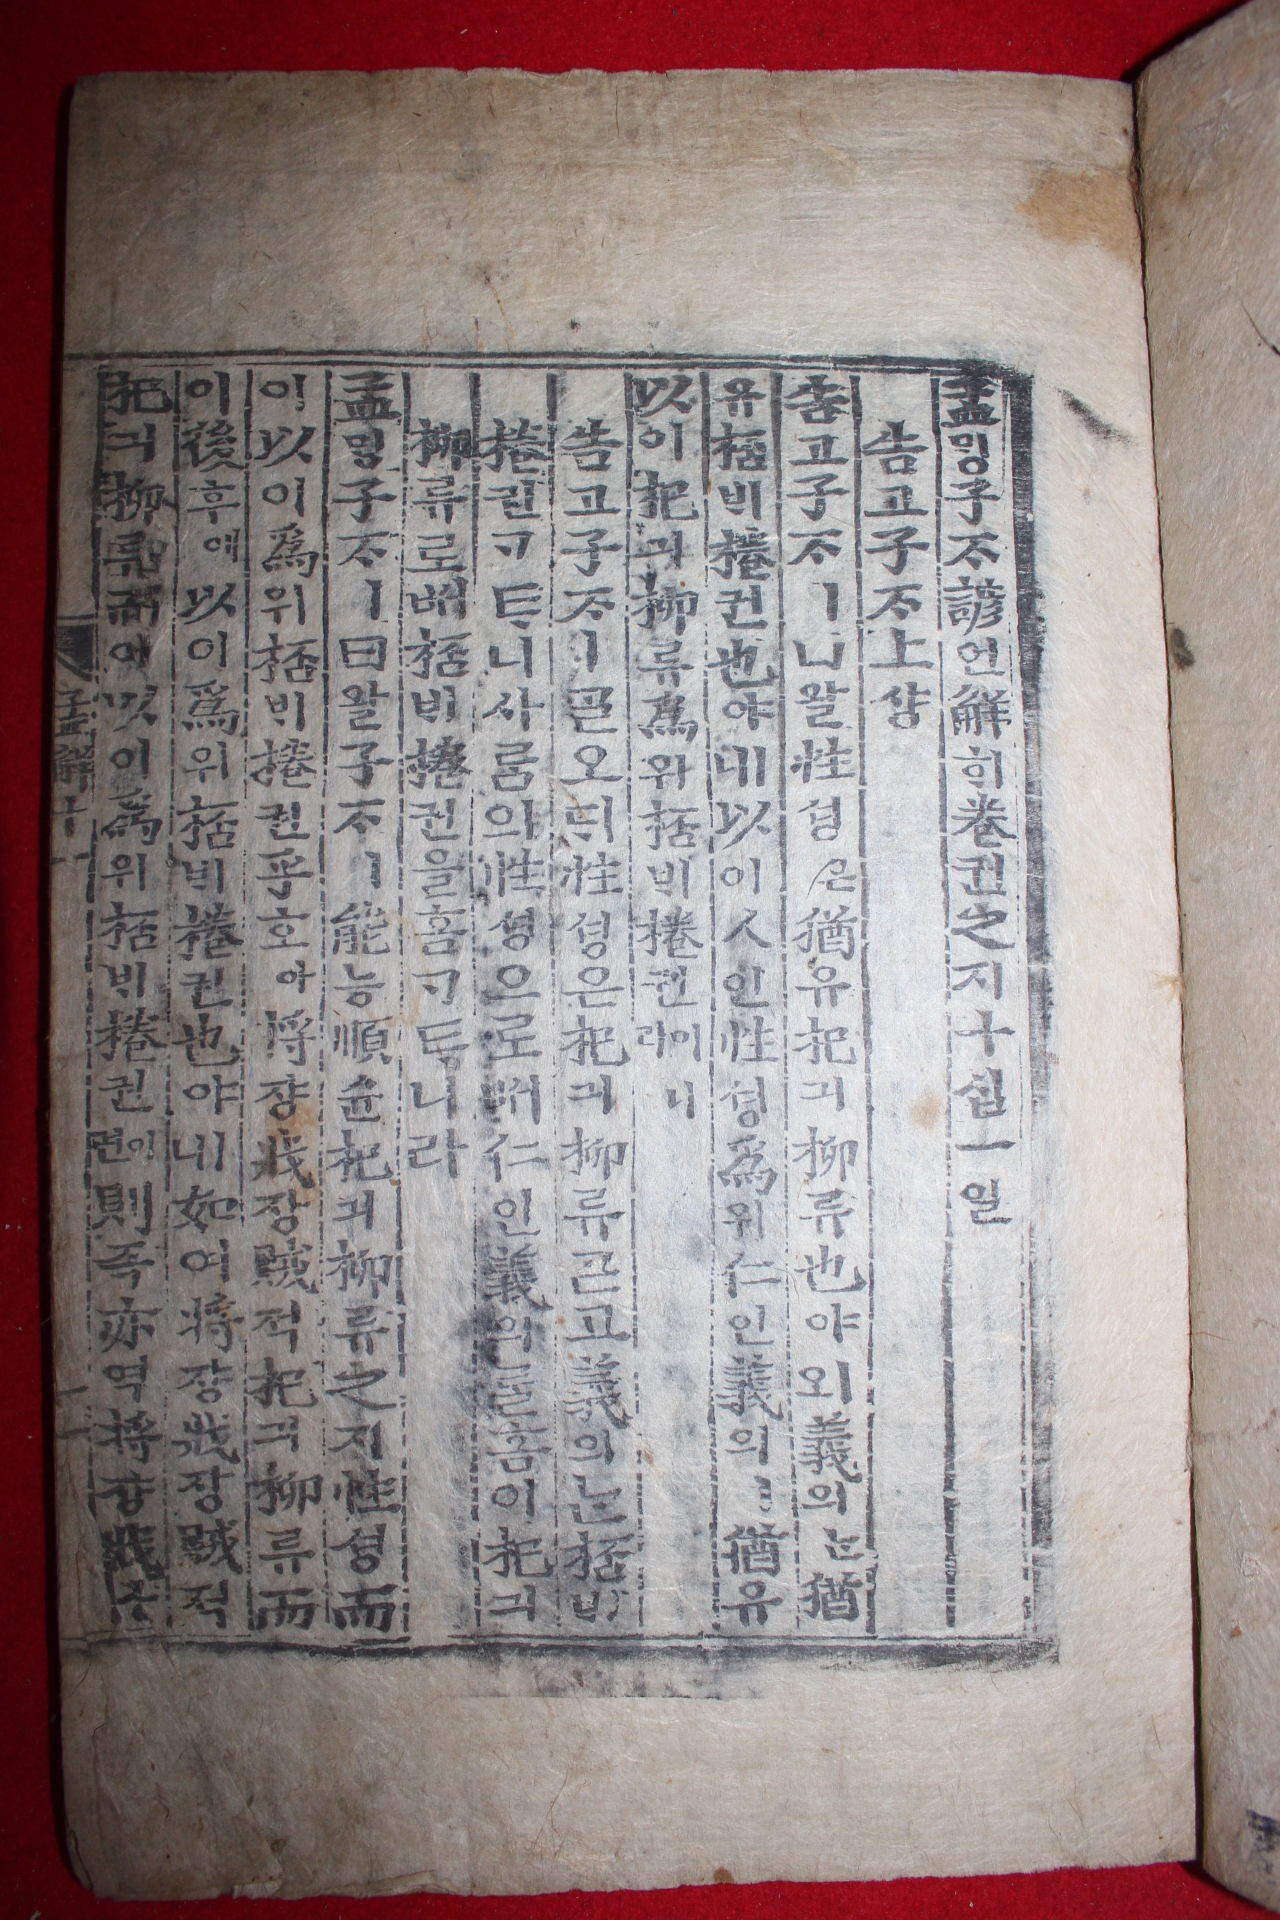 孟밍子ᄌᆞ諺언解히卷권之지十십一일
告고子ᄌᆞ上샹
告고子ᄌᆞㅣ曰왈性셩은猶유杞긔柳류也야ㅣ오義의ᄂᆞᆫ猶
유桮비棬권也야ㅣ니以이人인性셩爲위仁인義의猶유
以이杞긔柳류爲위桮비棬권이니라
告고子ᄌᆞㅣᄀᆞᆯ오ᄃᆡ性셩은杞긔柳류ᄀᆞᆮ고義의ᄂᆞᆫ桮비
棬권ᄀᆞᄐᆞ니사ᄅᆞᆷ의性셩으로ᄡᅥ仁인義의ᄅᆞᆯ홈이杞긔
柳류로ᄡᅥ桮비棬권을홈ᄀᆞᄐᆞ니라
孟밍子ᄌᆞㅣ曰왈子ᄌᆞㅣ能능順슌杞긔柳류之지性셩而
이以이爲위桮비棬권乎호아將쟝戕장賊적杞긔柳류而
이後후에以이爲위桮비棬권也야ㅣ니如여將쟝戕장賊적
杞긔柳류而이以이爲위桮비棬권이면則즉亦역將쟝戕쟝
孟解十一 一